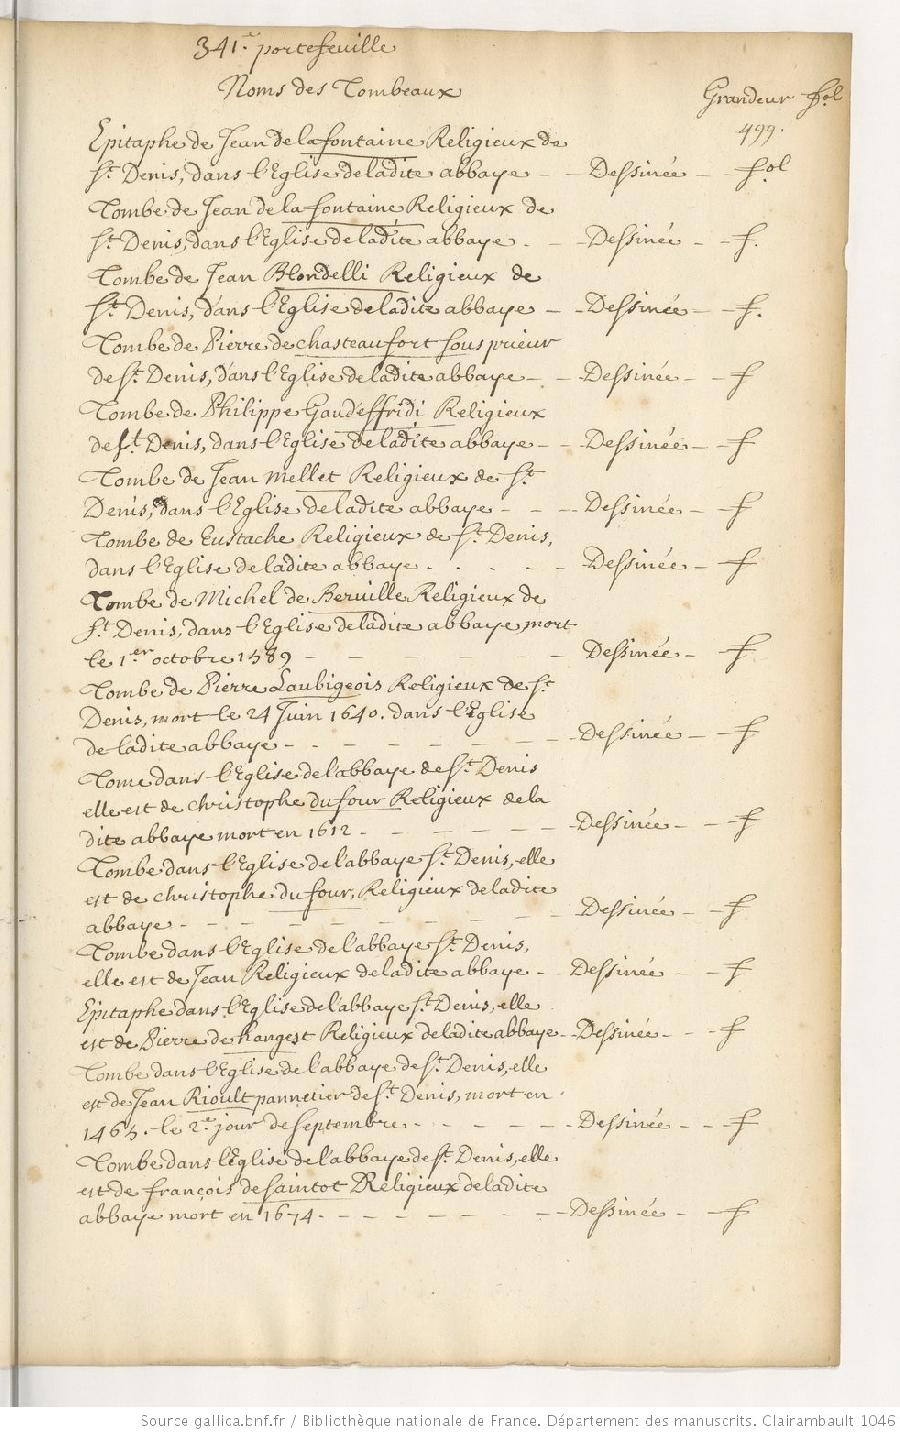 341.e portefeuille
Noms des Tombeaux
Grandeur fol
499.
Epitaphe de Jean de la fontaine Religieux de
St Denis, dans l'Eglise de ladite abbaye - - Dessinée - fol
Tombe de Jean de la fontaine Religieux de
St Denis, dans l'Eglise de ladite abbaye . - - Dessinée - - f.
Tombe de Jean Blondelli Religieux de
St Denis, dans l'Eglise de ladite abbaye - - Dessinée - - f.
Tombe de Pierre de chasteaufort sous prieur
de St Denis, dans l'Eglise de ladite abbaye - - Dessinée - - f
Tombe de Philippe Gaudeffridi Religieux
de St Denis, dans l'Eglise de ladite abbaye - - Dessinée - - f
Tombe de Jean Mellet Religieux de St
Denis, dans l'Eglise de ladite abbaye - - - Dessinée - - f
Tombe de Eustache Religieux de St Denis,
dans l'Eglise de ladite abbaye . . . - - Dessinée - - f
Tombe de Michel de Berville Religieux de
St Denis, dans l'Eglise de ladite abbaye, mort
le 1er octobre 1589 - - - - - - Dessinée - - f
Tombe de Pierre Laubigeois Religieux de St
Denis, mort le 24 Juin 1640. dans l'Eglise
de ladite abbaye - - - - - - - Dessinée - - f
Tome dans l'Eglise de l'abbaye de St Denis
elle est de christophe du four Religieux de la
dite abbaye mort en 1612 - - - - - - Dessinée - - f
Tombe dans l'Eglise de l'abbaye St Denis, elle
est de christophe du four, Religieux de ladite
abbaye - - - - - - - - Dessinée - - f
Tombe dans l'Eglise de l'abbaye St Denis,
elle est de Jean Religieux de ladite abbaye - Dessinée - - f
Epitaphe dans l'Eglise de l'abbaye St Denis, elle
est de Pierre de Hangest Religieux de ladite abbaye - Dessinée - - f
Tombe dans l'Eglise de l'abbaye de St Denis, elle
est de Jean Rioult pannetier de St Denis, mort en
1463. le 2e jour de septembre. - - - - - Dessinée - - f
Tombe dans l'Eglise de l'abbaye de St Denis, elle
est de françois de saintot Religieux de ladite
abbaye mort en 1674. - - - - - - Dessinée - - f
Source gallica.bnf.fr / Bibliothèque nationale de France. Département des manuscrits. Clairambault 1046